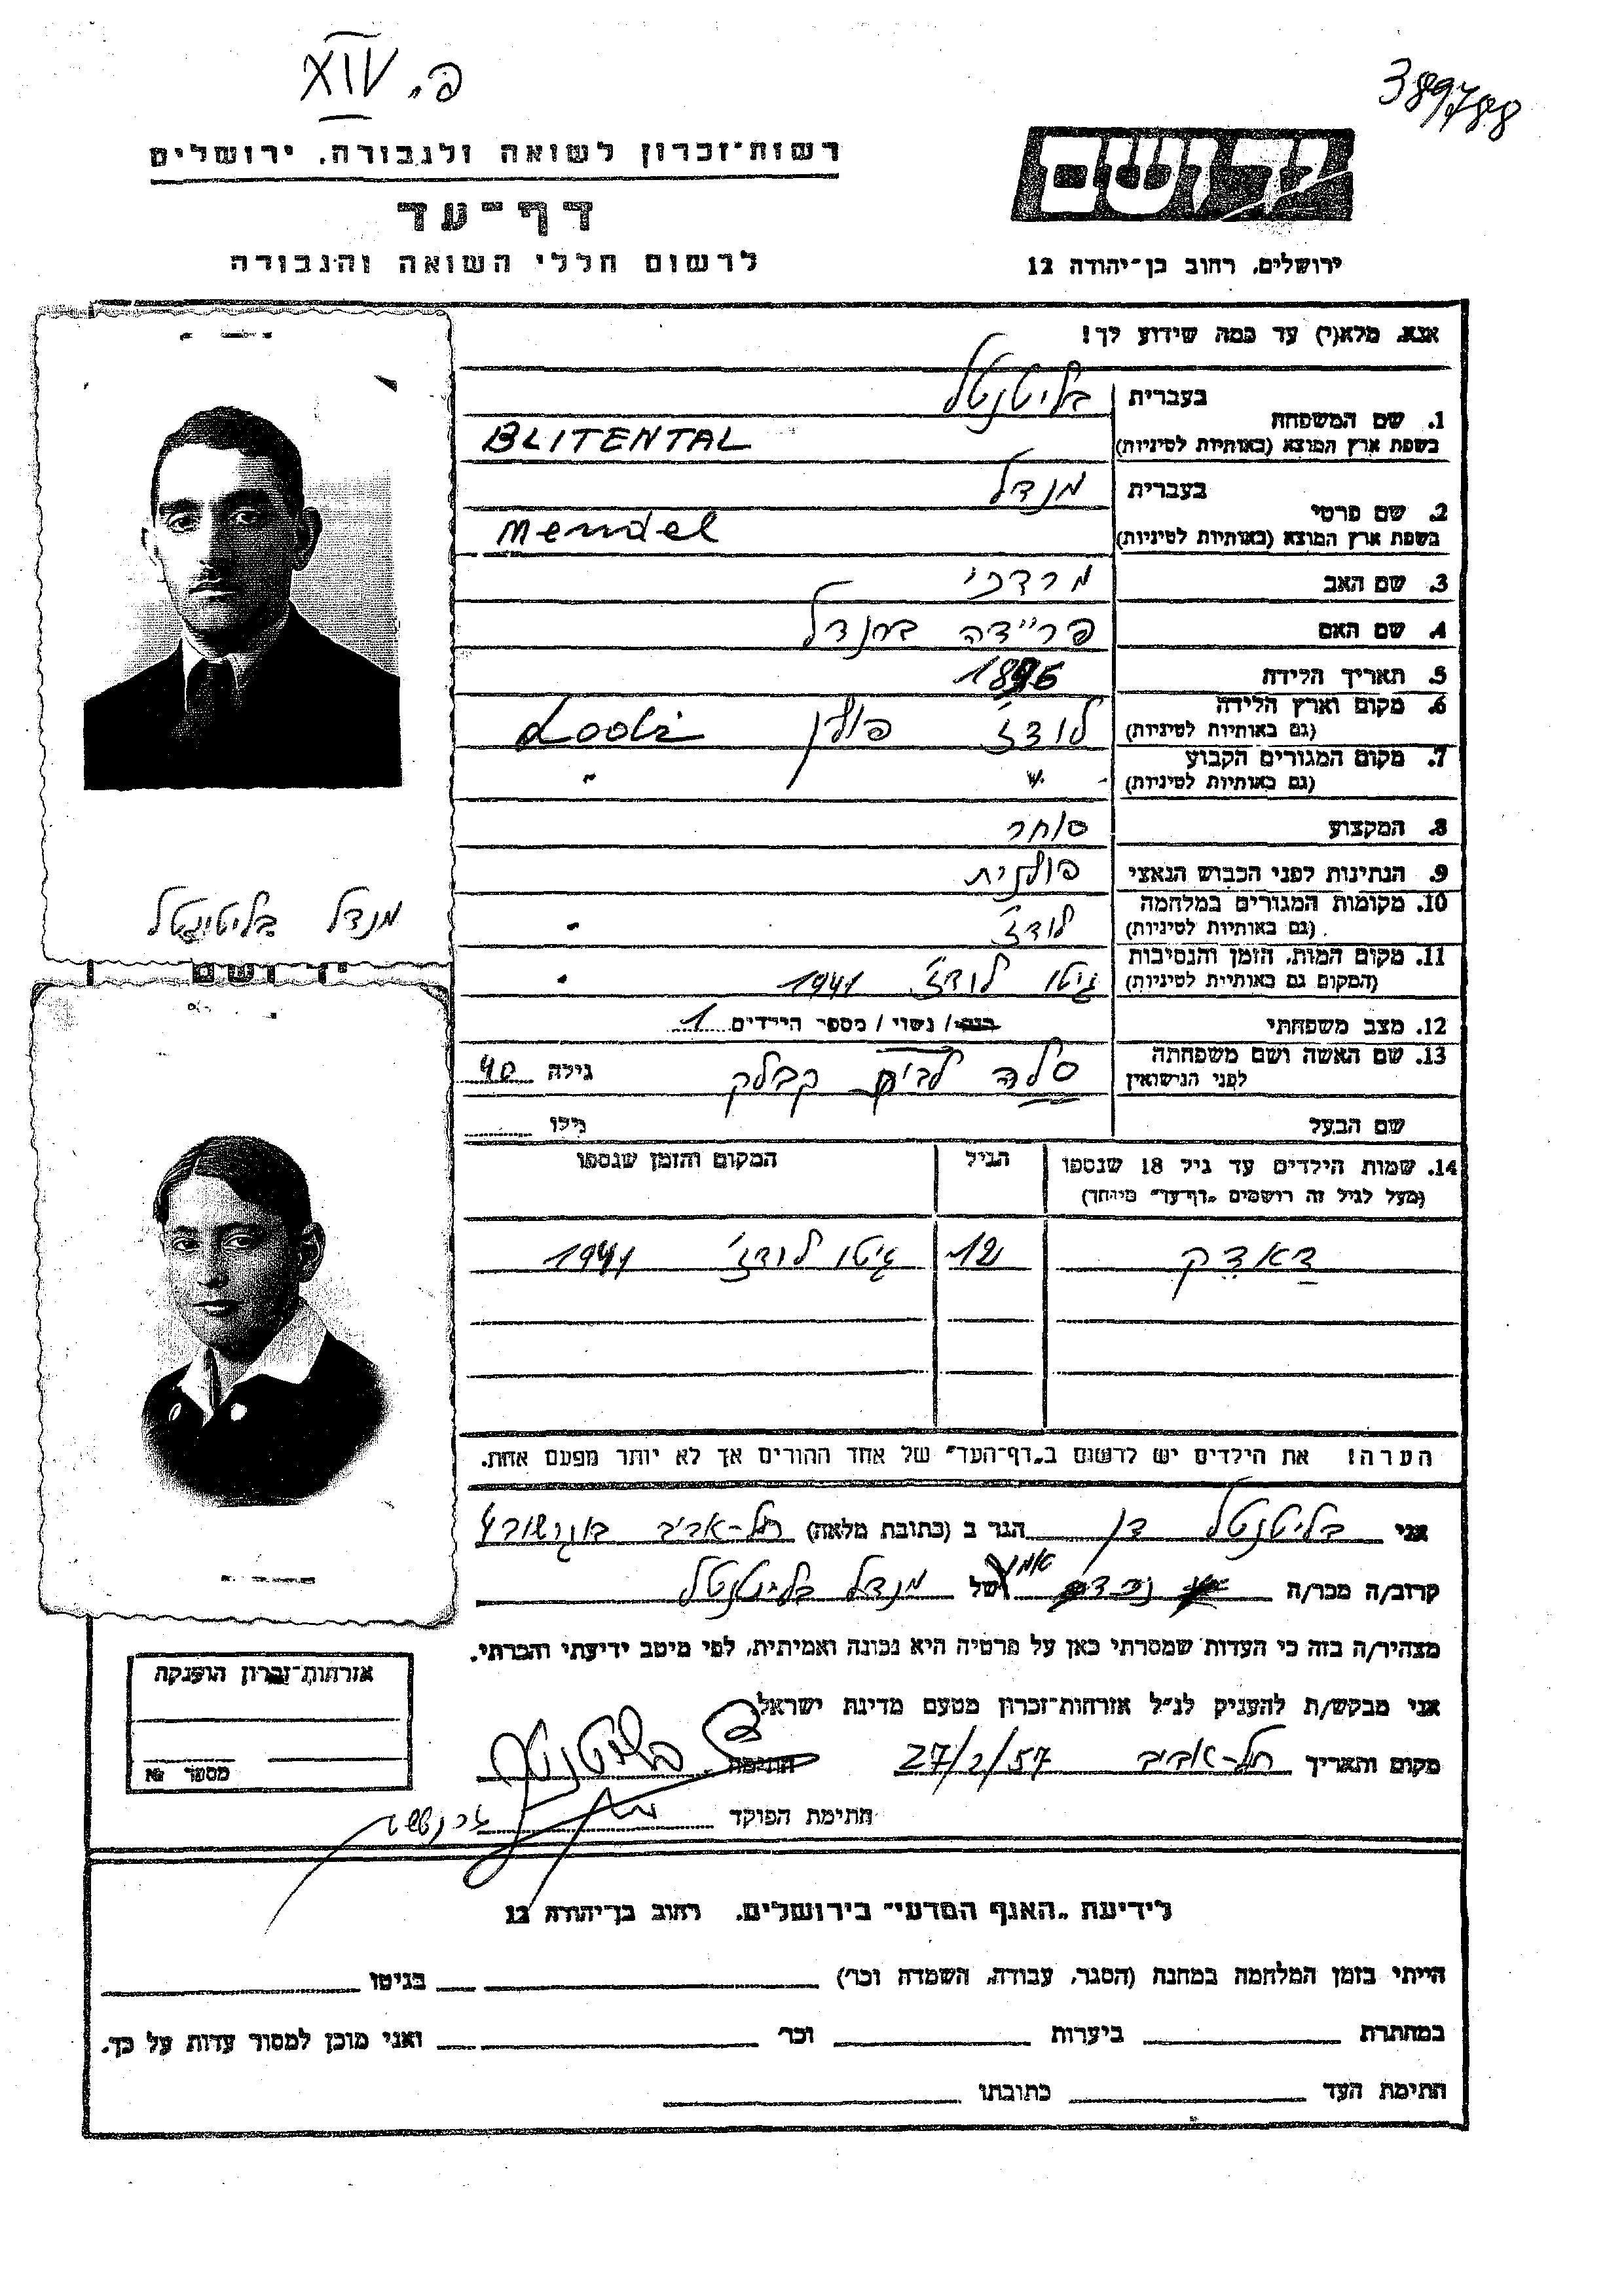 פ. XIV
389788
רשות־זכרון לשואה ולגבורה, ירושלים
דף־עד
לרשום חללי השואה והגבורה
יד ושם
ירושלים, רחוב בן־יהודה 12
אנא, מלא(י) עד כמה שידוע לך!
1. שם המשפחה
בעברית בליטנטל
בשפת ארץ המוצא (באותיות לטיניות) BLITENTAL
2. שם פרטי
בעברית מנדל
בשפת ארץ המוצא (באותיות לטיניות) Mendel
3. שם האב מרדכי
4. שם האם פריידה
5. תאריך הלידה
6. מקום וארץ הלידה לודז' פולין
(גם באותיות לטיניות)
7. מקום המגורים הקבוע " "
(גם באותיות לטיניות)
8. המקצוע סוחר
9. הנתינות לפני הכבוש הנאצי פולנית
10. מקומות המגורים במלחמה לודז'
(גם באותיות לטיניות)
11. מקום המות, הזמן והנסיבות גיטו לודז' 1941
(המקום גם באותיות לטיניות)
12. מצב משפחתי רווק / נשוי / מספר הילדים 1
13. שם האשה ושם משפחתה סלה לבית גילה 40
לפני הנישואין
שם הבעל גילו
14. שמות הילדים עד גיל 18 שנספו הגיל המקום והזמן שנספו
(מעל לגיל זה רושמים „דף־עד" מיוחד)
דאדק 12 גיטו לודז' 1941
הערה! את הילדים יש לרשום ב„דף־העד" של אחד ההורים אך לא יותר מפעם אחת.
אני בליטנטל דן הגר ב (כתובת מלאה) תל-אביב
קרוב/ה מכר/ה של מנדל בליטנטל
מצהיר/ה בזה כי העדות שמסרתי כאן על פרטיה היא נכונה ואמיתית, לפי מיטב ידיעתי והכרתי.
אני מבקש/ת להעניק לנ"ל אזרחות־זכרון מטעם מדינת ישראל
מקום ותאריך תל-אביב 27/2/57 חתימה ד. בליטנטל
חתימת הפוקד
מנדל בליטינטל
יד ושם
אזרחות־זכרון הוענקה
מספר
לידיעת „האגף המדעי" בירושלים. רחוב בן־יהודה 12
הייתי בזמן המלחמה במחנה (הסגר, עבודה, השמדה וכו') בגיטו
במחתרת ביערות וכו' ואני מוכן למסור עדות על כך.
חתימת העד כתובתו